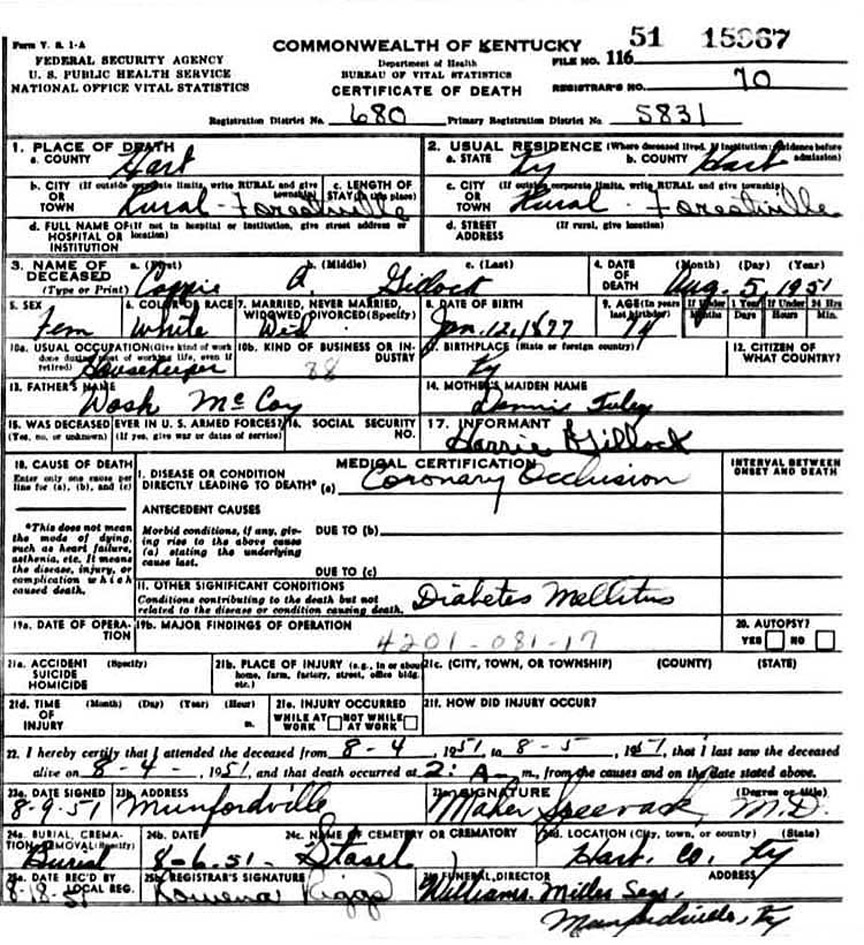 Form V. S. 1-A
FEDERAL SECURITY AGENCY
U. S. PUBLIC HEALTH SERVICE
NATIONAL OFFICE VITAL STATISTICS
COMMONWEALTH OF KENTUCKY
Department of Health
BUREAU OF VITAL STATISTICS
CERTIFICATE OF DEATH
FILE NO. 116 51 15967
REGISTRAR'S NO. 70
Registration District No. 680 Primary Registration District No. 5831
1. PLACE OF DEATH
a. COUNTY Hart
b. CITY (If outside corporate limits, write RURAL and give township)
OR
TOWN Rural - Forestville
c. LENGTH OF
STAY (in this place)
d. FULL NAME OF (If not in hospital or institution, give street address or location)
HOSPITAL OR
INSTITUTION
2. USUAL RESIDENCE (Where deceased lived. If institution: residence before admission)
a. STATE Ky b. COUNTY Hart
c. CITY (If outside corporate limits, write RURAL and give township)
OR
TOWN Rural - Forestville
d. STREET (If rural, give location)
ADDRESS
3. NAME OF a. (First) b. (Middle) c. (Last)
DECEASED
(Type or Print) A.
4. DATE (Month) (Day) (Year)
OF
DEATH Aug. 5, 1951
5. SEX
Fem
6. COLOR OR RACE
White
7. MARRIED, NEVER MARRIED,
WIDOWED DIVORCED (Specify)
Wid.
8. DATE OF BIRTH
Jan. 12, 1877
9. AGE (In years last birthday)
74
If Under 1 Year
Months Days
If Under 24 Hrs
Hours Min.
10a. USUAL OCCUPATION (Give kind of work done during most of working life, even if retired)
Housekeeper
10b. KIND OF BUSINESS OR INDUSTRY
88
11. BIRTHPLACE (State or foreign country)
Ky
12. CITIZEN OF
WHAT COUNTRY?
13. FATHER'S NAME
Wash McCoy
14. MOTHER'S MAIDEN NAME
15. WAS DECEASED EVER IN U. S. ARMED FORCES?
(Yes, no, or unknown) (If yes, give war or dates of service)
16. SOCIAL SECURITY
NO.
17. INFORMANT
Gillock
18. CAUSE OF DEATH
Enter only one cause per
line for (a), (b), and (c)
MEDICAL CERTIFICATION
INTERVAL BETWEEN
ONSET AND DEATH
I. DISEASE OR CONDITION
DIRECTLY LEADING TO DEATH* (a) Coronary Occlusion
*This does not mean
the mode of dying,
such as heart failure,
asthenia, etc. It means
the disease, injury, or
complication which
caused death.
ANTECEDENT CAUSES
Morbid conditions, if any, giv-
ing rise to the above cause
(a) stating the underlying
cause last.
DUE TO (b)
DUE TO (c)
11. OTHER SIGNIFICANT CONDITIONS
Conditions contributing to the death but not
related to the disease or condition causing death.
Diabetes Mellitus
19a. DATE OF OPERA-
TION
19b. MAJOR FINDINGS OF OPERATION
4201-081-17
20. AUTOPSY?
YES NO
21a. ACCIDENT (Specify)
SUICIDE
HOMICIDE
21b. PLACE OF INJURY (e.g., in or about
home, farm, factory, street, office bldg.
etc.)
21c. (CITY, TOWN, OR TOWNSHIP) (COUNTY) (STATE)
21d. TIME (Month) (Day) (Year) (Hour)
OF
INJURY m.
21e. INJURY OCCURRED
WHILE AT WORK NOT WHILE AT WORK
21f. HOW DID INJURY OCCUR?
22. I hereby certify that I attended the deceased from 8-4, 1951, to 8-5, 1951, that I last saw the deceased
alive on 8-4-, 1951, and that death occurred at 2: A m., from the causes and on the date stated above.
23a. DATE SIGNED
8-9-51
23b. ADDRESS
Munfordville
23c. SIGNATURE (Degree or title)
Maher Speevack, M.D.
24a. BURIAL, CREMA-
TION, REMOVAL (Specify)
Burial
24b. DATE
8-6-51-
24c. NAME OF CEMETERY OR CREMATORY
24d. LOCATION (City, town, or county) (State)
Hart. Co, Ky
25a. DATE REC'D BY
LOCAL REG.
8-18-51
25b. REGISTRAR'S SIGNATURE
Rowena Riggs
26. FUNERAL DIRECTOR ADDRESS
Williams. Miller
Munfordville, Ky